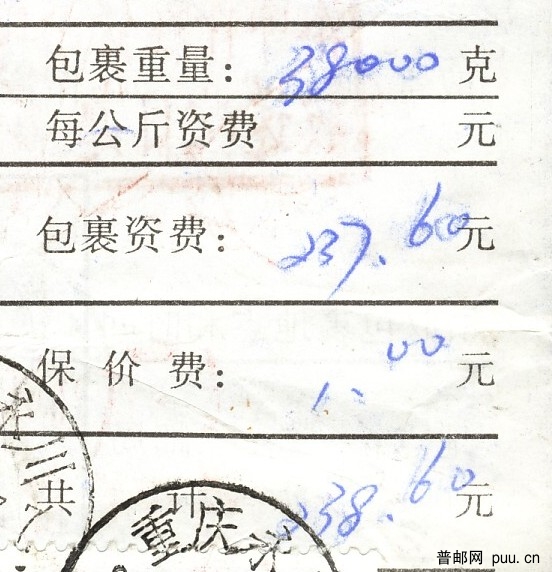 包裹重量: 38000 克
每公斤资费 元
包裹资费: 237.60 元
保价费: 1.00 元
共计 238.60 元
永川
重庆 永
普邮网 puu.cn